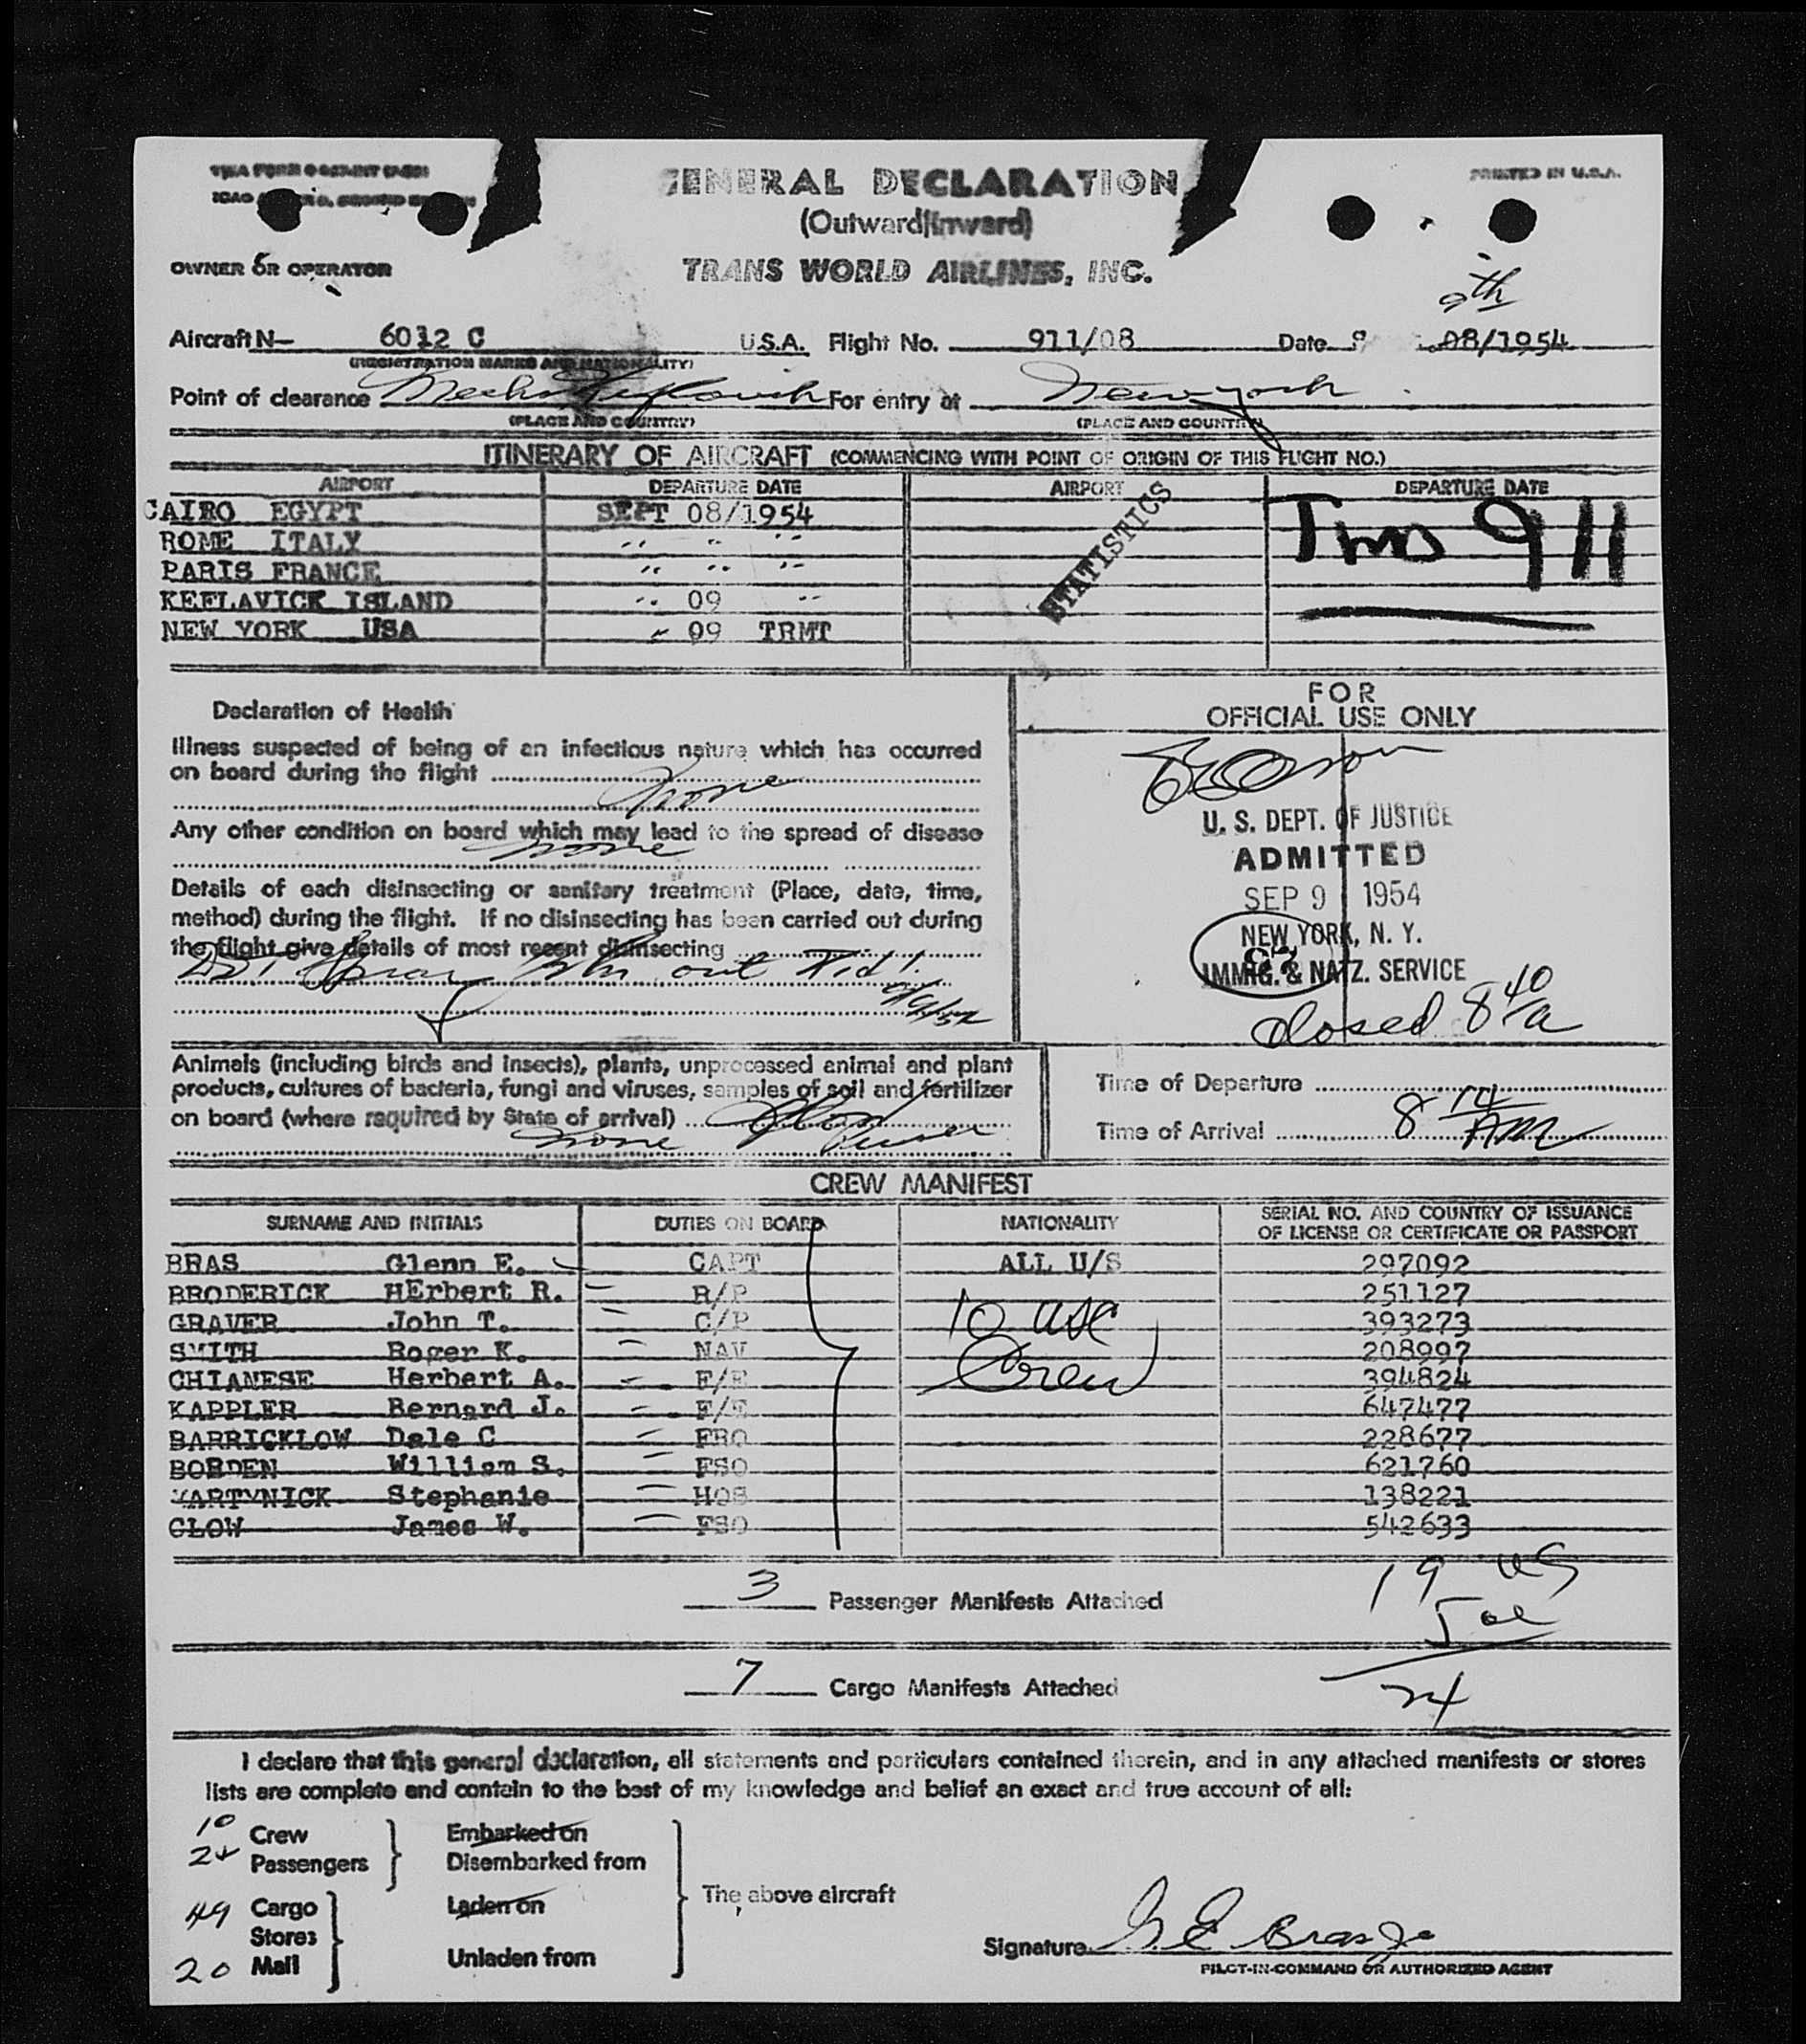 GENERAL DECLARATION
PRINTED IN U.S.A.
(Outward/Inward)
OWNER OR OPERATOR
TRANS WORLD AIRLINES, INC.
9th
Aircraft N— 6012 C U.S.A. Flight No. 911/08 Date 08/1954
(REGISTRATION MARKS AND NATIONALITY)
Point of clearance For entry at New York
(PLACE AND COUNTRY) (PLACE AND COUNTRY)
ITINERARY OF AIRCRAFT (COMMENCING WITH POINT OF ORIGIN OF THIS FLIGHT NO.)
AIRPORT DEPARTURE DATE AIRPORT DEPARTURE DATE
CAIRO EGYPT SEPT 08/1954
ROME ITALY " " "
PARIS FRANCE " " "
KEFLAVICK ISLAND " 09 "
NEW YORK USA " 09 TRMT
STATISTICS
911
FOR
OFFICIAL USE ONLY
Declaration of Health
Illness suspected of being of an infectious nature which has occurred
on board during the flight
None
Any other condition on board which may lead to the spread of disease
none
Details of each disinsecting or sanitary treatment (Place, date, time,
method) during the flight. If no disinsecting has been carried out during
the flight give details of most recent disinsecting
U. S. DEPT. OF JUSTICE
ADMITTED
SEP 9 1954
NEW YORK, N. Y.
IMMIG. & NATZ. SERVICE
closed 8 40 a
Animals (including birds and insects), plants, unprocessed animal and plant
products, cultures of bacteria, fungi and viruses, samples of soil and fertilizer
on board (where required by State of arrival)
none
Time of Departure
Time of Arrival 8 14 AM
CREW MANIFEST
SURNAME AND INITIALS DUTIES ON BOARD NATIONALITY SERIAL NO. AND COUNTRY OF ISSUANCE
OF LICENSE OR CERTIFICATE OR PASSPORT
BRAS Glenn E. CAPT ALL U/S 297092
BRODERICK HErbert R. R/P 251127
GRAVER John T. C/P 393273
SMITH Roger K. NAV 208997
CHIANESE Herbert A. F/E 394824
KAPPLER Bernard J. F/E 647477
BARRICKLOW Dale C FRO 228677
BORDEN William S. FSO 621760
MARTYNICK Stephanie HOS 138221
CLOW James W. FSO 542633
10 usc
Crew
3 Passenger Manifests Attached
19 us
5 al
24
7 Cargo Manifests Attached
I declare that this general declaration, all statements and particulars contained therein, and in any attached manifests or stores
lists are complete and contain to the best of my knowledge and belief an exact and true account of all:
10 Crew
24 Passengers
Embarked on
Disembarked from
49 Cargo
Stores
20 Mail
Laden on
Unladen from
The above aircraft
Signature G E Bras Jr
PILOT-IN-COMMAND OR AUTHORIZED AGENT